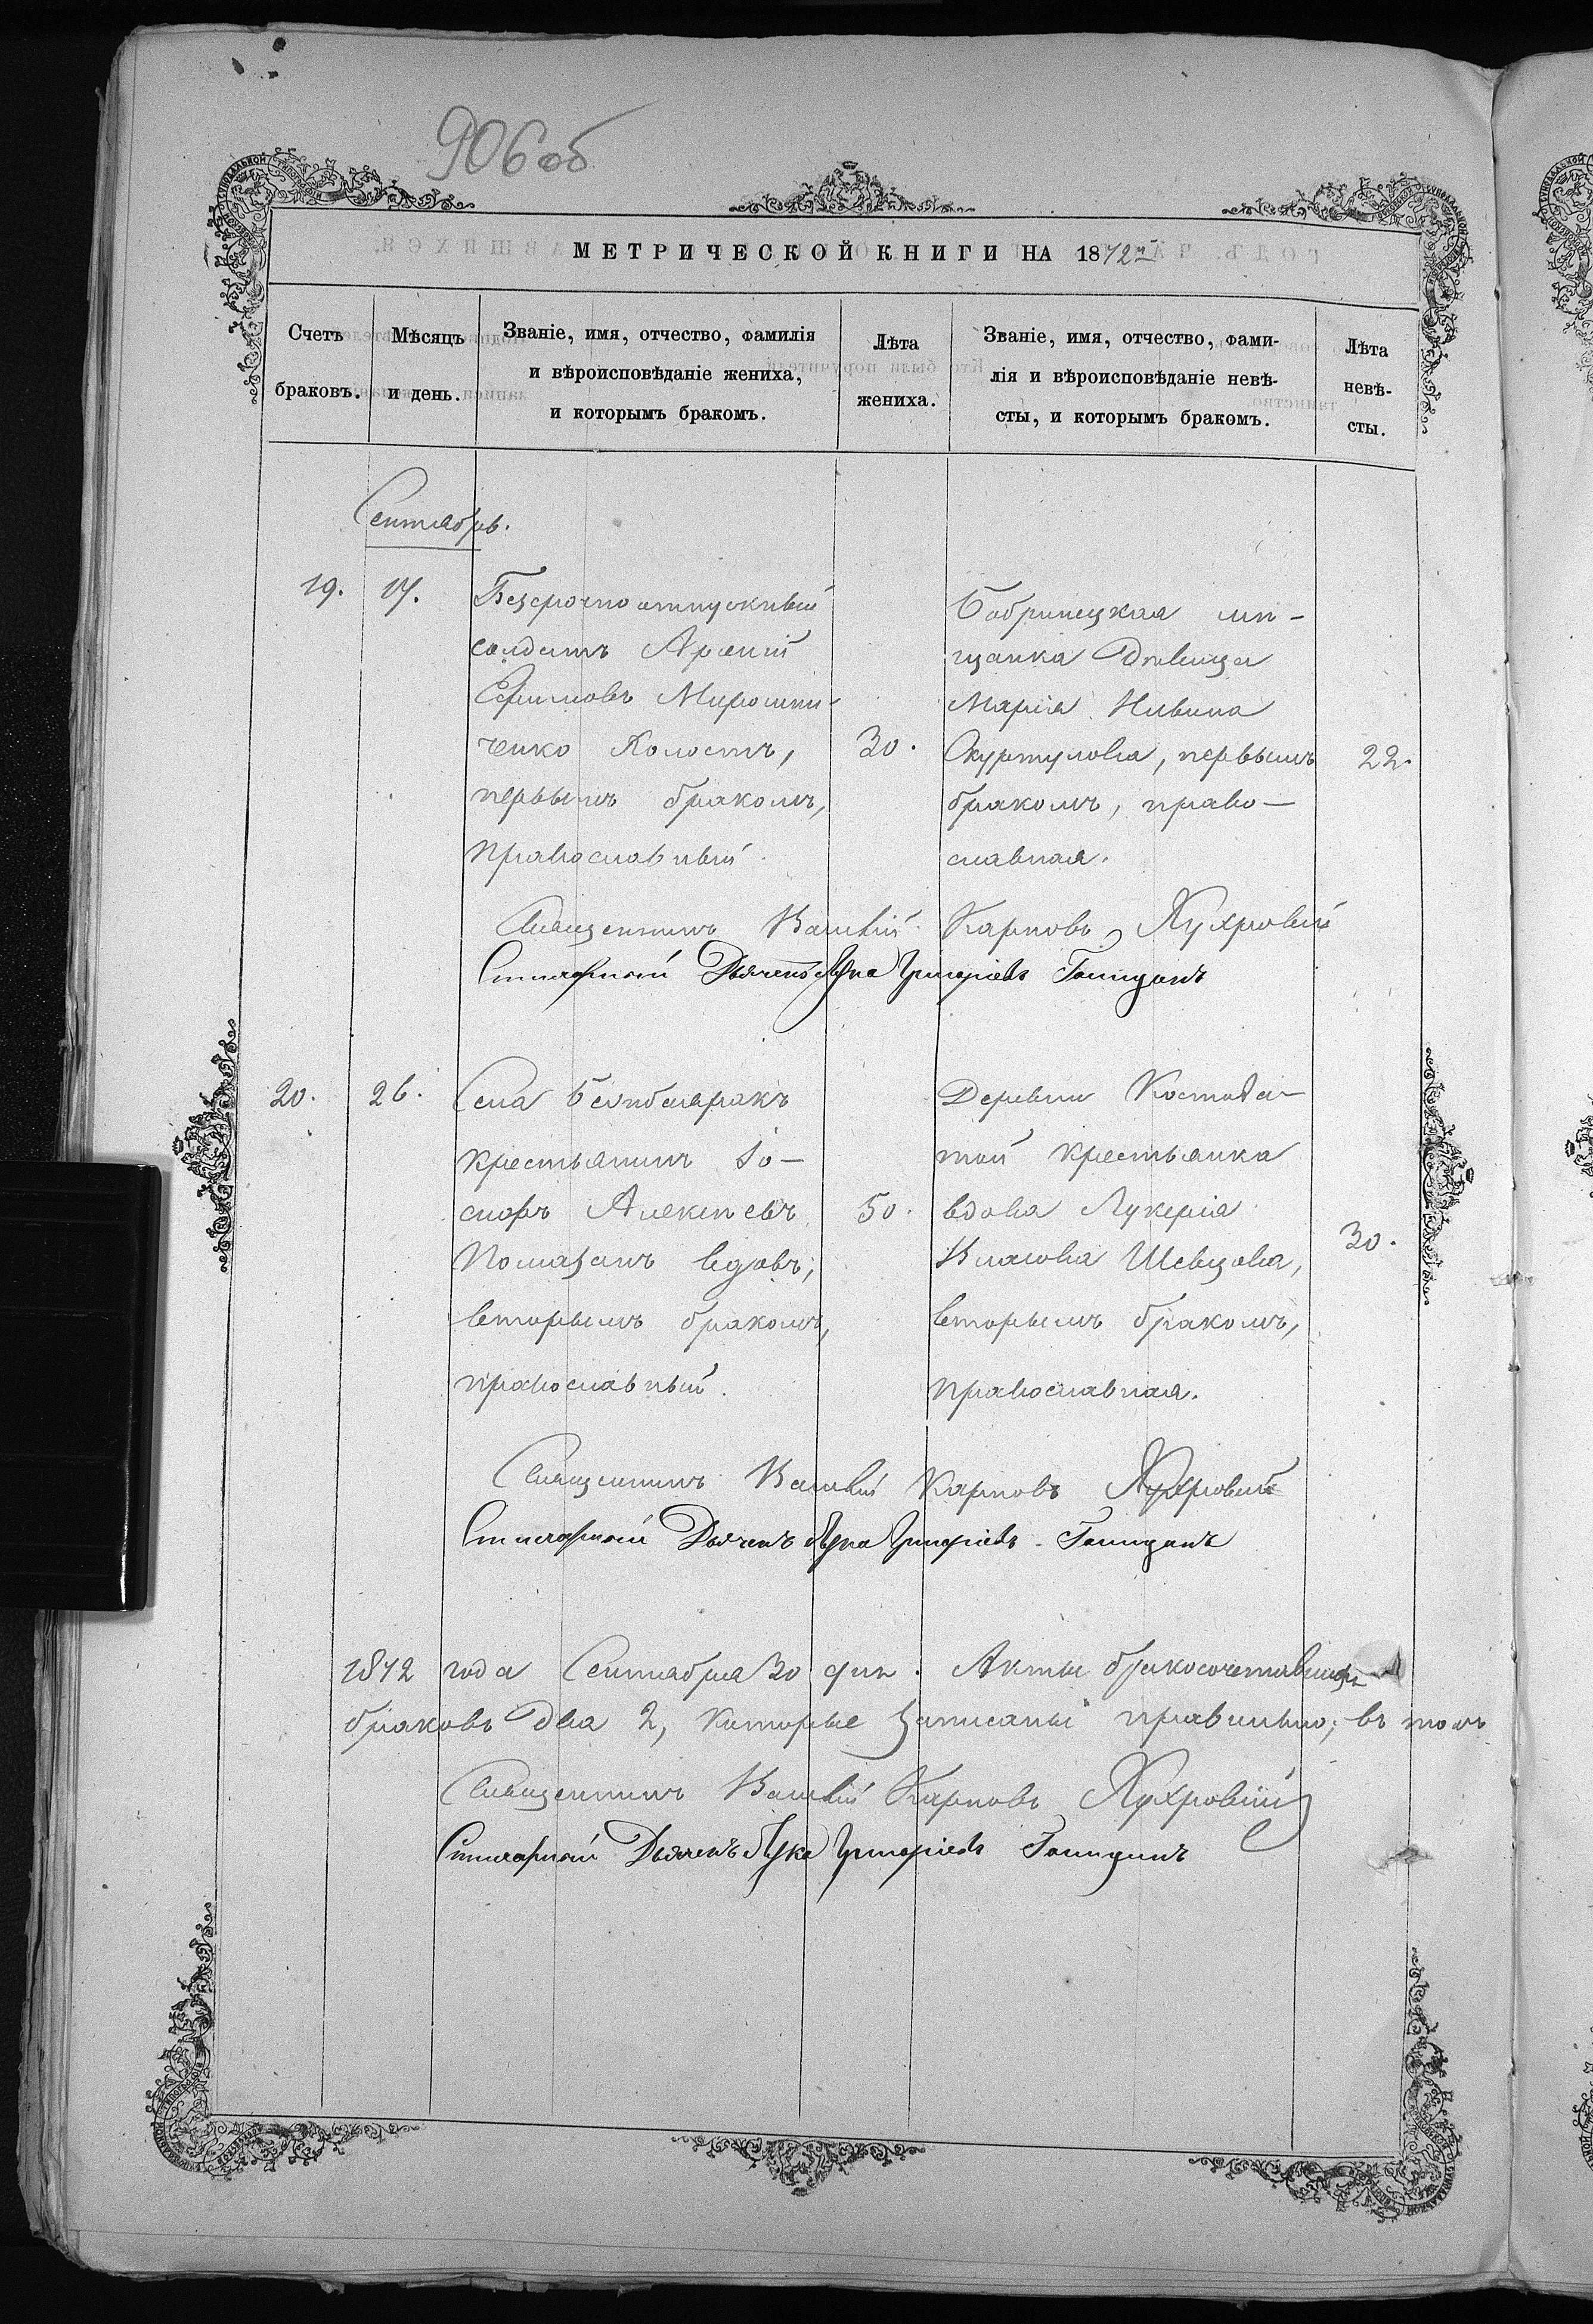 906 об
МЕТРИЧЕСКОЙ КНИГИ НА 1872й
Счетъ браковъ.
Мѣсяцъ и день.
Званіе, имя, отчество, фамилія
и вѣроисповѣданіе жениха,
и которымъ бракомъ.
Лѣта
жениха.
Званіе, имя, отчество, фами-
лія и вѣроисповѣданіе невѣ-
сты, и которымъ бракомъ.
Лѣта
невѣ-
сты.
Сентябрь.
19. 17.
Безсрочноотпускный
солдатъ Арсеній
Ефимовъ Мирошни-
ченко Холостъ,
первымъ бракомъ,
православный.
30.
Бобринецкая мѣ-
щанка Дѣвица
Марія Ивина
Скуртулова, первымъ
бракомъ, право-
славная.
22.
Священникъ Василій Карповъ
Стихарный Дьячекъ Лука Григоріевъ
20. 26.
Села
крестьянинъ Іо-
сифъ Алексѣевъ
Помазанъ вдовъ,
вторымъ бракомъ,
православный.
50.
Деревни Костова-
той крестьянка
вдова Лукерія
Власова Шевцова,
вторымъ бракомъ,
православная.
30.
Священникъ Василій Карповъ
Стихарный Дьячекъ Лука Григоріевъ
1872 года Сентября 30 дня. Акты бракосочетавшихъ
браковъ два 2, которые записаны правильно; въ томъ
Священникъ Василій Карповъ
Стихарный Дьячекъ Лука Григоріевъ